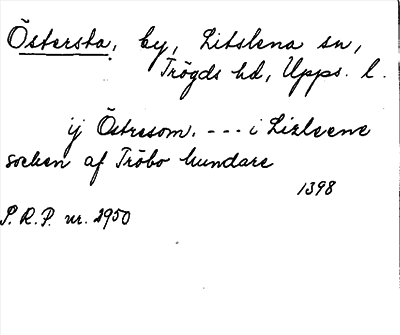 Östersta, by, Litslena sn,
Trögds hd, Upps. l.
ij Östresom. --- i Lizleene
socken af Tröbo hundare
1398
S.R.P. nr. 2950